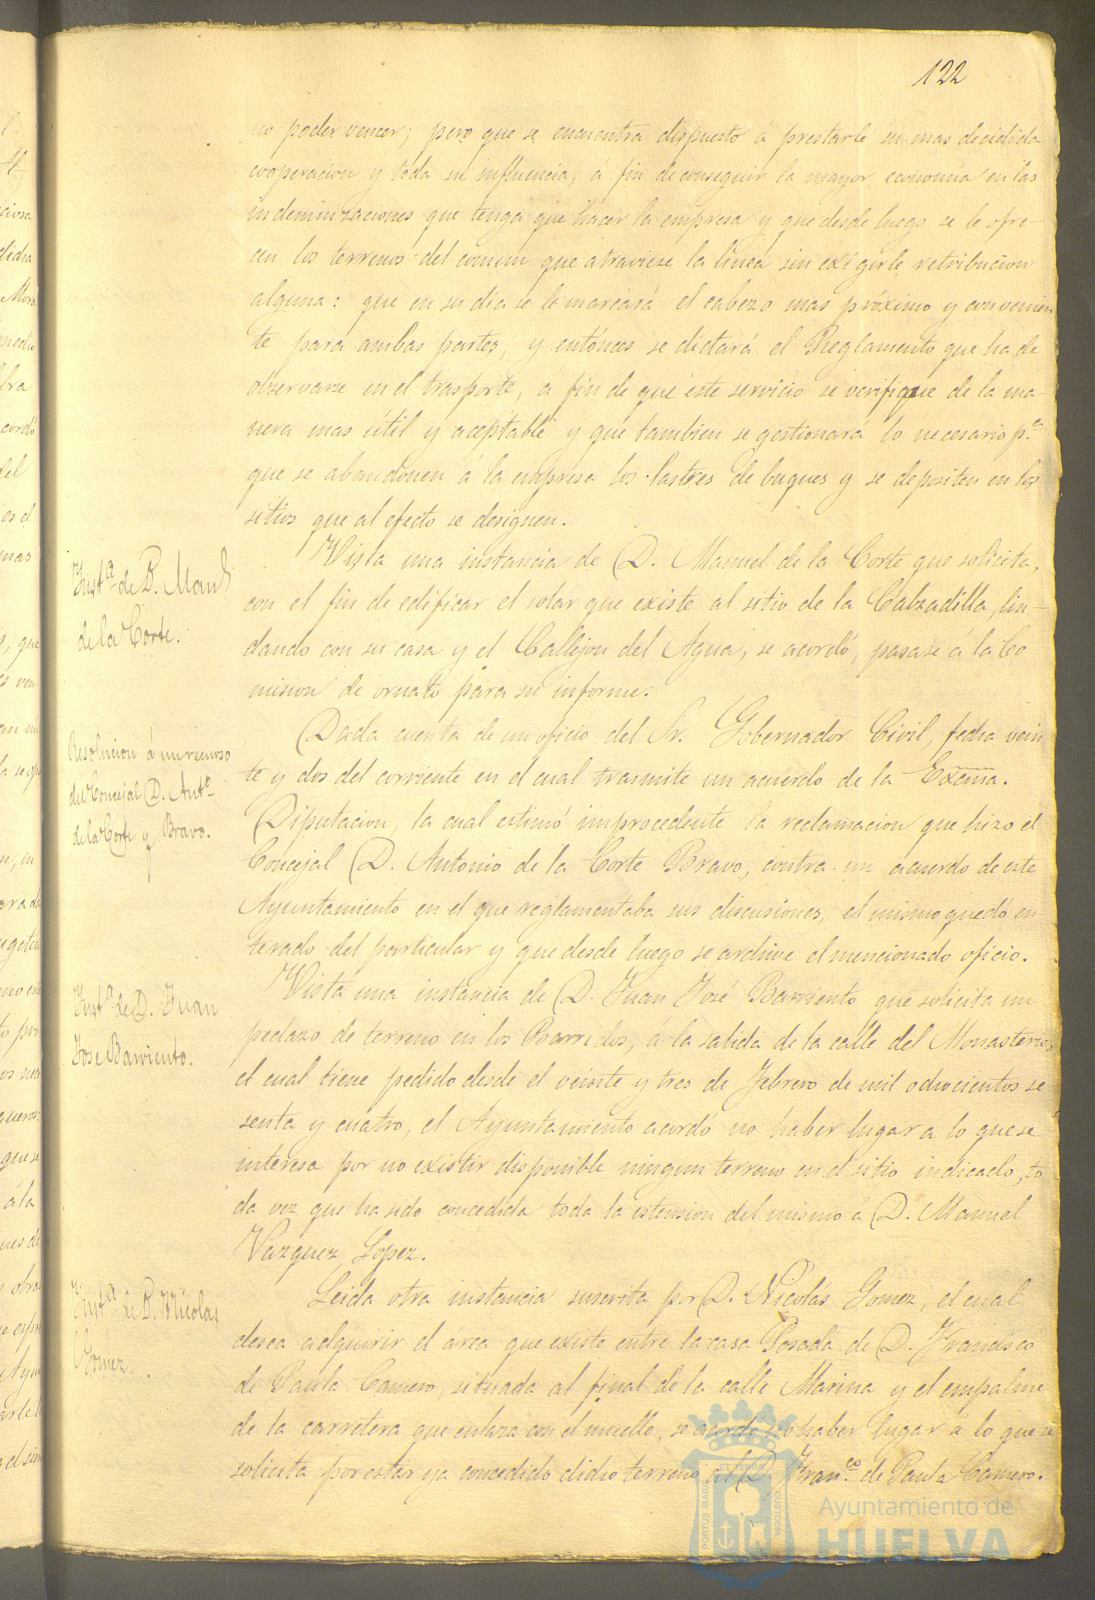 122
no poder vencer; pero que se encuentra dispuesto á prestarle su mas decidida
cooperacion y toda su influencia, á fin de conseguir la mayor economía en las
indemnizaciones que tenga que hacer la empresa y que desde luego se le ofre-
cen los terrenos del comun que atraviese la línea sin exigirle retribucion
alguna: que en su dia se le marcará el cabezo mas próximo y convenien
te para ambas partes, y entónces se dictará el Reglamento que ha de
observarse en el trasporte, á fin de que este servicio se verifique de la ma-
nera mas útil y aceptable y que tambien se gestionará lo necesario p.ª
que se abandonen á la empresa los lastres de buques y se depositen en los
sitios que al efecto se designen.
Inst.ª de D. Man.l
de la Corte.
Vista una instancia de D. Manuel de la Corte que solicita,
con el fin de edificar el solar que existe al sitio de la Calzadilla, lin-
dando con su casa y el Callejon del Agua, se acordó, pasase á la Co
mision de ornato para su informe.
Resolucion á un recurso
del Concejal D. Ant.º
de la Corte y Bravo.
Dada cuenta de un oficio del Sr. Gobernador Civil, fecha vein
te y dos del corriente en el cual trasmite un acuerdo de la Excma.
Diputacion, la cual estimó improcedente la reclamacion que hizo el
Concejal D. Antonio de la Corte Bravo, contra un acuerdo de este
Ayuntamiento en el que reglamentaba sus discusiones, el mismo quedó en
terado del particular y que desde luego se archive el mencionado oficio.
Inst.ª de D. Juan
José Barriento.
Vista una instancia de D. Juan José Barriento que solicita un
pedazo de terreno en los Barridos, á la salida de la calle del Monasterio,
el cual tiene pedido desde el veinte y tres de Febrero de mil ochocientos se
senta y cuatro, el Ayuntamiento acordó no háber lugar a lo que se
interesa por no existir disponible ningun terreno en el sitio indicado, to
da vez que ha sido concedida toda la estension del mismo á D. Manuel
Vazquez Lopez.
Inst.ª de D. Nicolas
Gomez.
Leida otra instancia suscrita por D. Nicolás Gomez, el cual
desea adquirir el area que existe entre la casa Posada de D. Francisco
de Paula Camero, situada al final de la calle Marina y el empalme
de la carretera que enlaza con el muelle, se acordó no haber lugar á lo que se
solicita por estar ya concedido dicho terreno al D. Fran.co de Paula Camero.
Ayuntamiento de
HUELVA